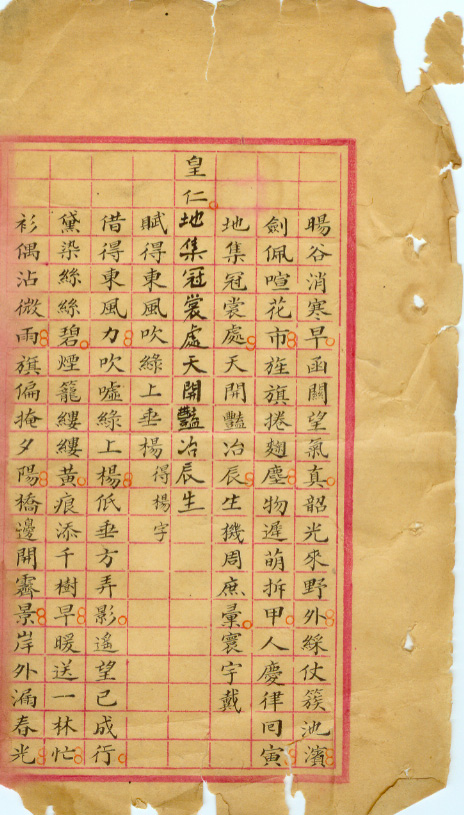 暘谷消寒早函關望氣真韶光來野外綵仗簇池濱
劍佩喧花市旌旗捲麴塵物遲萌拆甲人慶律囘寅
地集冠裳處天開豔冶辰生機周庶彚寰宇戴
皇仁地集冠裳處天開豔冶辰生
賦得東風吹綠上垂楊得楊字
借得東風力吹噓綠上楊低垂方弄影遙望已成行
黛染絲絲碧煙籠縷縷黃痕添千樹早暖送一林忙
衫偶沾微雨旗偏掩夕陽橋邊開霽景岸外漏春光